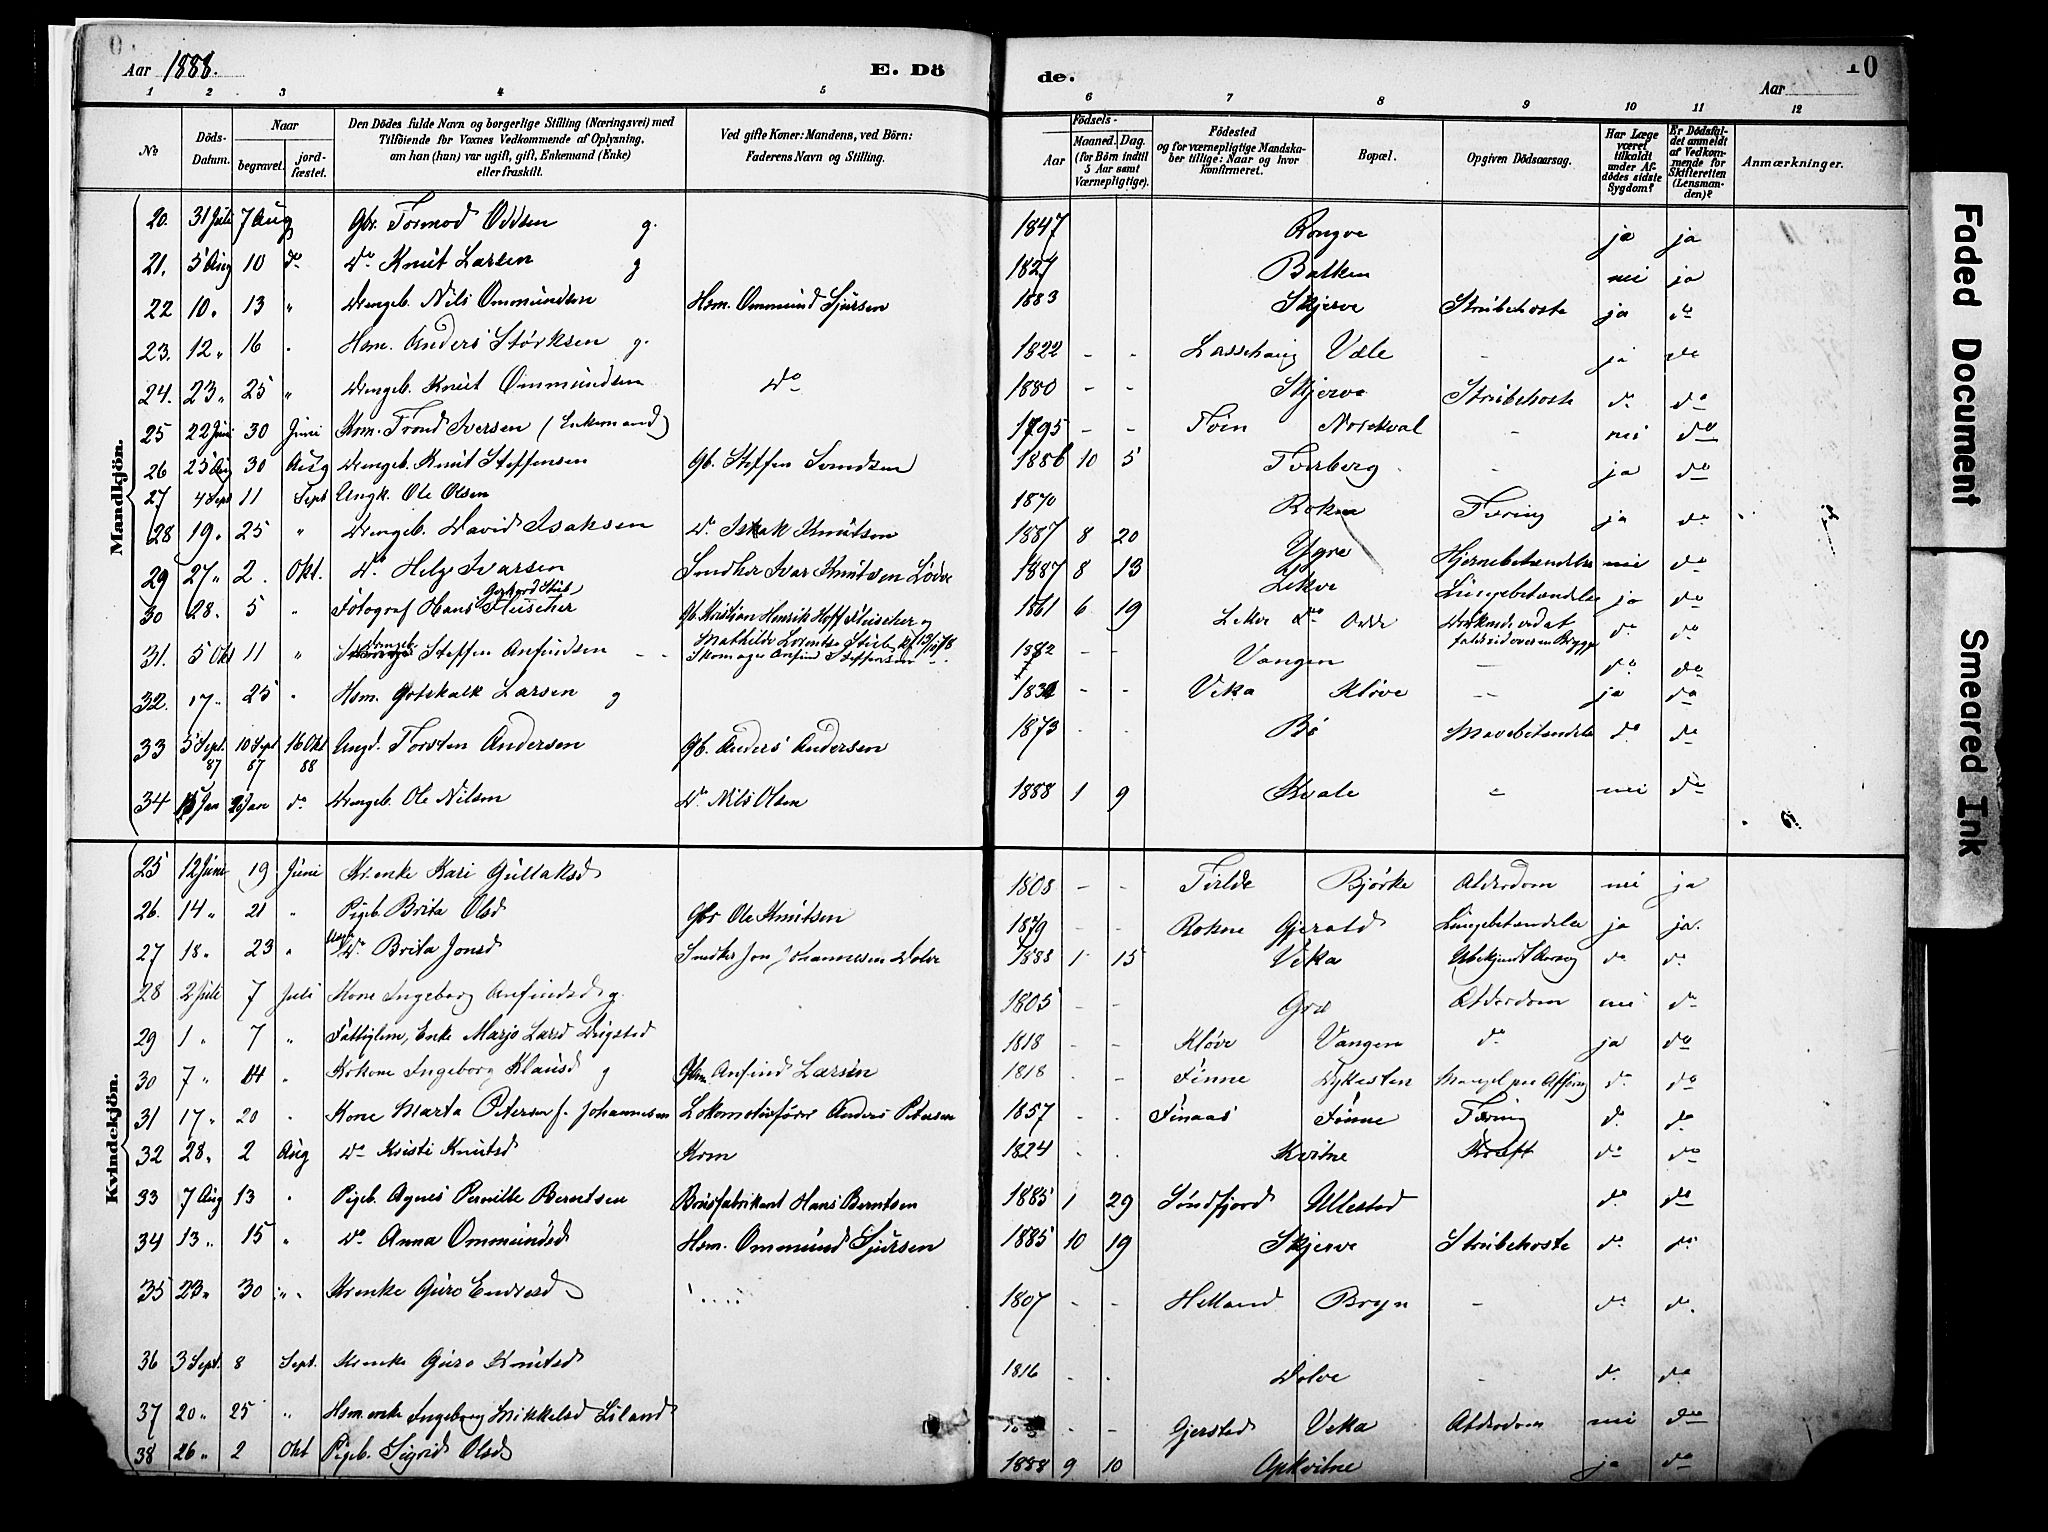 0
Aar 1888. E. Dö de. 10
Aar
1 2 3 4 5 6 7 8 9 10 11 12
No Döds-Datum. Naar begravet. jord-fæstet. Den Dödes fulde Navn og borgerlige Stilling (Næringsvei) med Tilföiende for Voxnes Vedkommende af Oplysning, om han (hun) var ugift, gift, Enkemand (Enke) eller fraskilt. Ved gifte Koner: Mandens, ved Börn: Faderens Navn og Stilling. Födsels- Aar Maaned. Dag. (for Börn indtil 5 Aar samt Værnepligtige). Födested og for værnepligtige Mandskaber tillige: Naar og hvor konfirmeret. Bopæl. Opgiven Dödsaarsag. Har Læge været tilkaldt under Afdödes sidste Sygdom? Er Dödsfaldet anmeldt af Vedkommende for Skifteretten (Lensmanden)? Anmærkninger.
Mandkjön.
20. 31 Juli 7 Aug Gbr. Tormod Oddsen g. 1847 Rongve ja ja
21. 5 Aug 10 do Do Knut Larsen g 1827 Balken nei ja
22 10 " 13 " Drengeb. Nils Ommundsen Hsm. Ommund Sjursen 1883 Skjerve Strubehoste ja do
23. 12 " 16 " Hsm. Anders Størksen g. 1822 - - Lassehaug Væle - ja do
24. 23 " 25 " Drengeb. Knut Ommundsen Do 1880 - - Skjerve Strubehoste do do
25 22 Juni 30 Juni Hsm. Trond Iversen (Enkemand) 1795 - - Tvin Norekval - nei do
26 25 Aug 30 Aug Drengeb. Knut Steffensen Gb. Steffen Svendsen 1886 10 5 Tverberg - ja do
27 4 Sept 11 Sept Ungk. Ole Olsen 1870 Rokne Tæring ja do
28 19 " 25 " Drengeb. David Isaksen Do Isak Knutsen 1887 8 20 Ygre Hjernebetændelse nei do
29 27 " 2 Okt. Do Helge Ivarsen Snedker Ivar Knutsen Løkve 1887 8 13 Lekve Lungebetændelse ja do
30 28. 5 " Fotograf Hans Gerhard Stub Fleischer Gb. Kristian Henrik Hoff Fleischer og Mathilde Lorentse Stub 1861 6 19 Lekve do do
31. 5 Okt 11 " Drengeb. Steffen Anfindsen - - Skomager Anfind Steffensen 1882 Vangen - do do
32. 17 " 25 " Hsm. Gotskalk Larsen g - - Veka Kløve - ja do
33 5 Sept. 87 10 Sept 87 16 Okt 88 Ungd. Torsten Andersen Gb. Anders Andersen 1873 - - Bø Mavebetændelse do do
34 Jan Jan do Drengeb. Ole Nilsen Do Nils Olsen 1888 1 9 Kvale " nei do
Kvindekjön.
25 12 Juni 19 Juni Kr.enke Kari Gullaksd 1808 - - Tirlde Bjørke Alderdom nei ja
26. 14 " 21 " Pigeb. Brita Olsd Gbr Ole Knutsen 1879 - - Rokne Gjerald Lungebetændelse ja ja.
27 18 " 23 " Do Brita Jonsd Snedker Jon Johannesen Dolve 1888 1 15 Veka Ubekjendt Aarsag do do
28 2 Juli 7 Juli Kone Ingeborg Anfindsd g. 1805 - - Græ Alderdom nei do
29 1 " 7 " Fattiglem, Enke Marjo Larsd 1818 - - Kløve Vangen do ja do
30 7 " 14 " Krkone Ingeborg Klausd g Hsm. Anfind Larsen 1818 - - Finne Dykesten do do
31 17 " 20 " Kone Marta Petersen f. Johannesen Lokomotivfører Anders Petersen 1857 - - Finaas Finne Tæring do do
32 28 " 2 Aug Do Kristi Knutsd 1824 - - Kvitne Kræft do do
33 7 Aug 13 " Pigeb. Agnes Pernille Berntsen Brusfabrikant Hans Berntsen 1885 1 29 Søndfjord Ullestad do do
34 13 " 15 " Do Anna Ommundsd Hsm. Ommund Sjursen 1885 10 19 Skjerve Strubehoste do do
35 23 " 30 " " Kr.enke Guro Endresd 1807 - - Helland Bryn - do do.
36 3 Sept. 8 Sept. Kr.enke Guro Knutsd 1816 - - Dolve - do do
37 20 " 25 " Hsm.enke Ingeborg Mikkelsd Liland - - Gjersted Veka Alderdom nei do
38 26 " 2 Okt Pigeb. Sigrid Olsd 1888 9 10 Opkvitne ja do
Faded Document
Smeared Ink